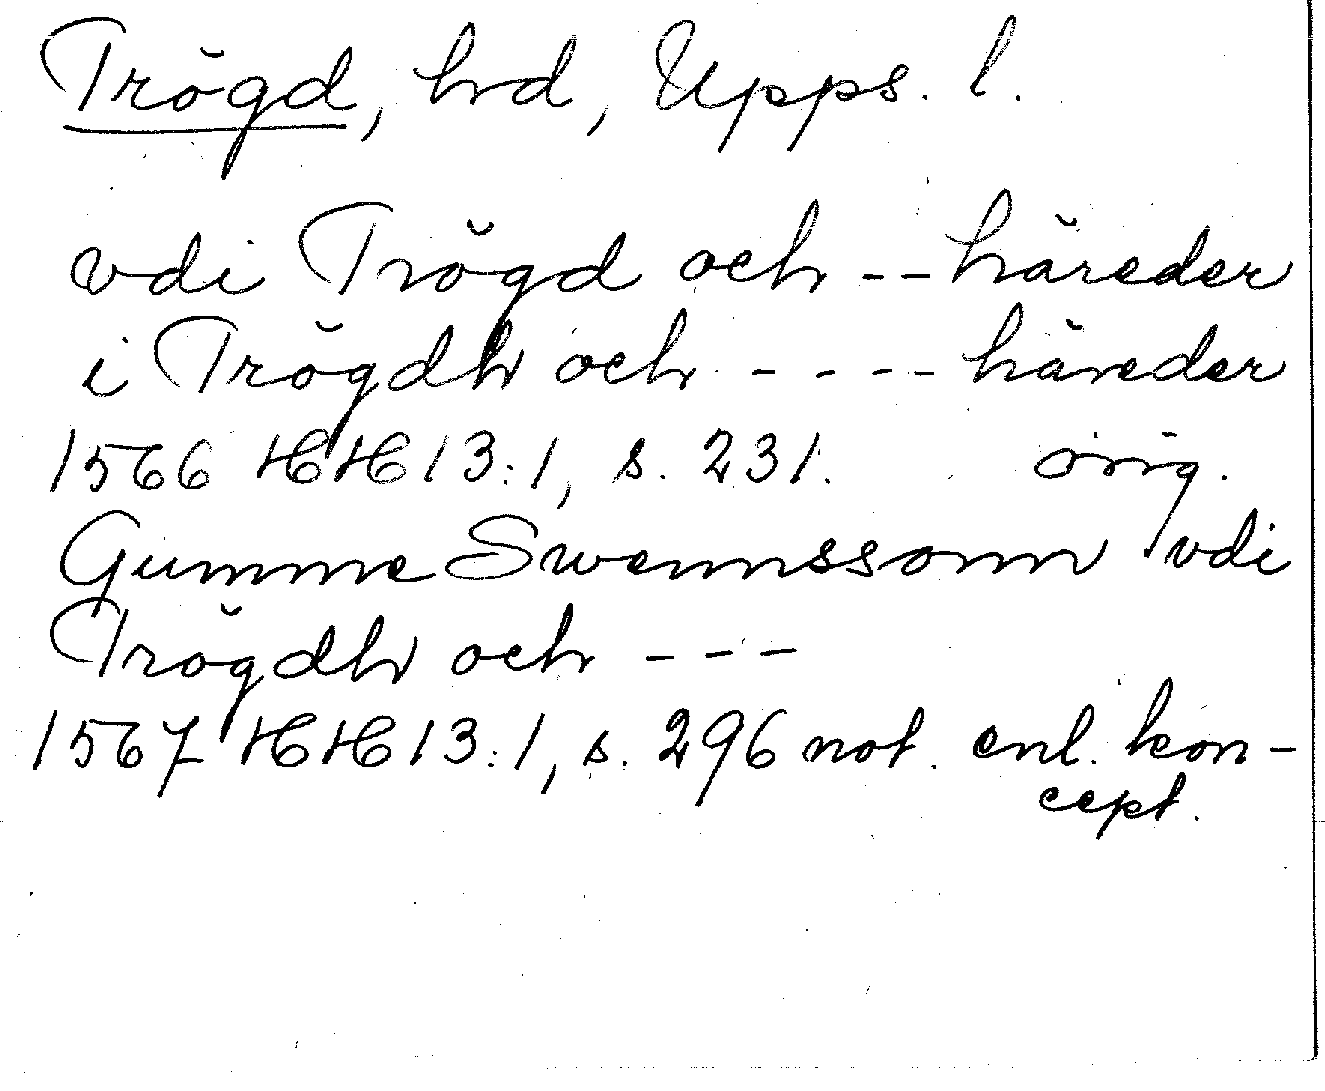 Trögd, hd, Upps. l.
vdi Trögd och -- häreder
i Trögdh och ---- häreder
1566 HH 13:1, s. 231. orig.
Gumme Swennssonn vdi
Trögdh och ---
1567 HH 13:1, s. 296 not. enl. kon-
cept.